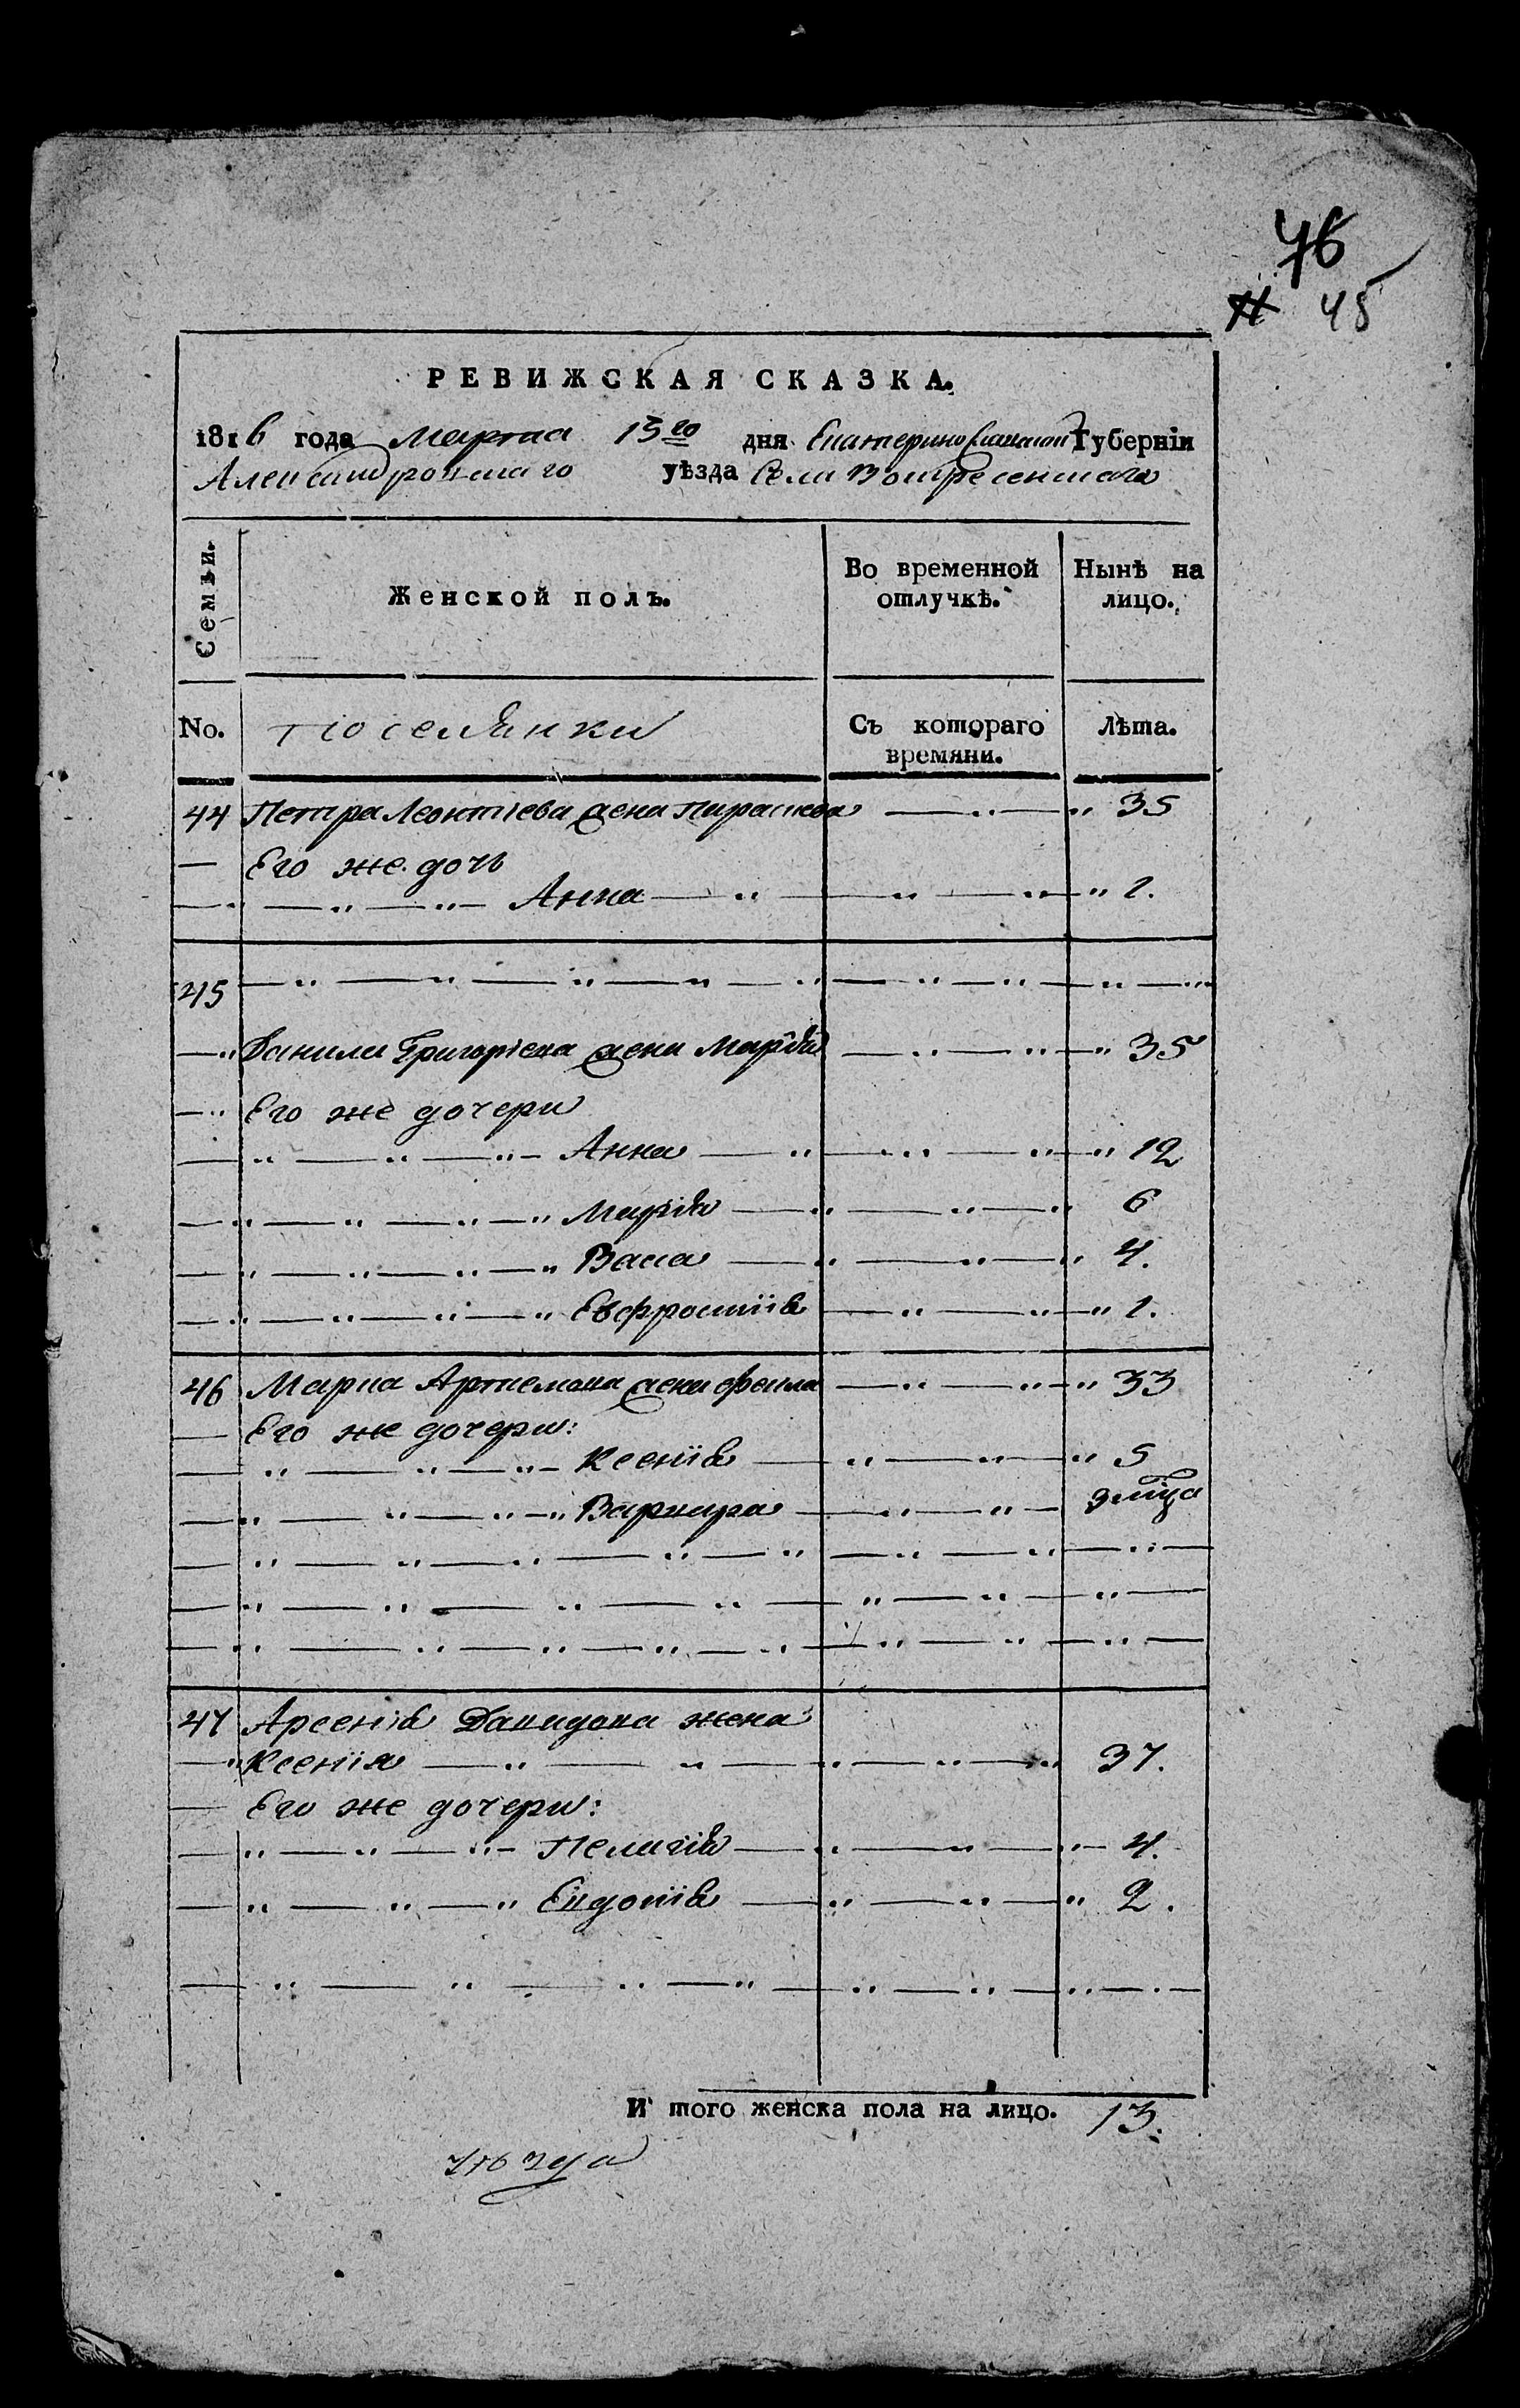 76
45
РЕВИЖСКАЯ СКАЗКА.
1816 года Марта 13го дня Екатеринославской Губерніи
Александровскаго уѣзда Села Воскресенскаго
Семьи. Женской полъ. Во временной отлучкѣ. Нынѣ на лицо.
No. Поселянки Съ котораго времяни. Лѣта.
44 Петра Леонтіева жена Параскева — „ — „ 35
— Его же дочь
— „ — „ — „ — Анна — „ — „ — „ — „ 1.
45 — „ — „ — „ — „ — „ — „ — „ — „ — „
— „ Данила Григоріева жена Марія — „ — „ — „ 35
— „ Его же дочери
— „ — „ — „ — Анна — „ — „ — „ — „ 12
— „ — „ — „ — „ Марія — „ — „ — „ 6
— „ — „ — „ — „ Васа — „ — „ — „ 4.
— „ — „ — „ — „ Евфросинія — „ — „ — „ 1.
46 Марка Артемова жена Фекла — „ — „ — „ 33
— Его же дочери:
— „ — „ — „ — Ксенія — „ — „ — „ 5
— „ — „ — „ — „ Варвара — „ — „ —
— „ — „ — „ — „ — „ — „ — „ — „ —
— „ — „ — „ — „ — „ — „ — „ —
— „ — „ — „ — „ — „ — „ — „ — „ —
47 Арсенія Давидова жена
— „ Ксенія — „ — „ — „ — „ — „ 37.
— Его же дочери:
— „ — „ — „ — Пелагія — „ — „ — „ — 4.
— „ — „ — „ Евдокія — „ — „ — „ 2.
— „ — „ — „ — „ — „ — „ — „ — . —
И того женска пола на лицо. 13.